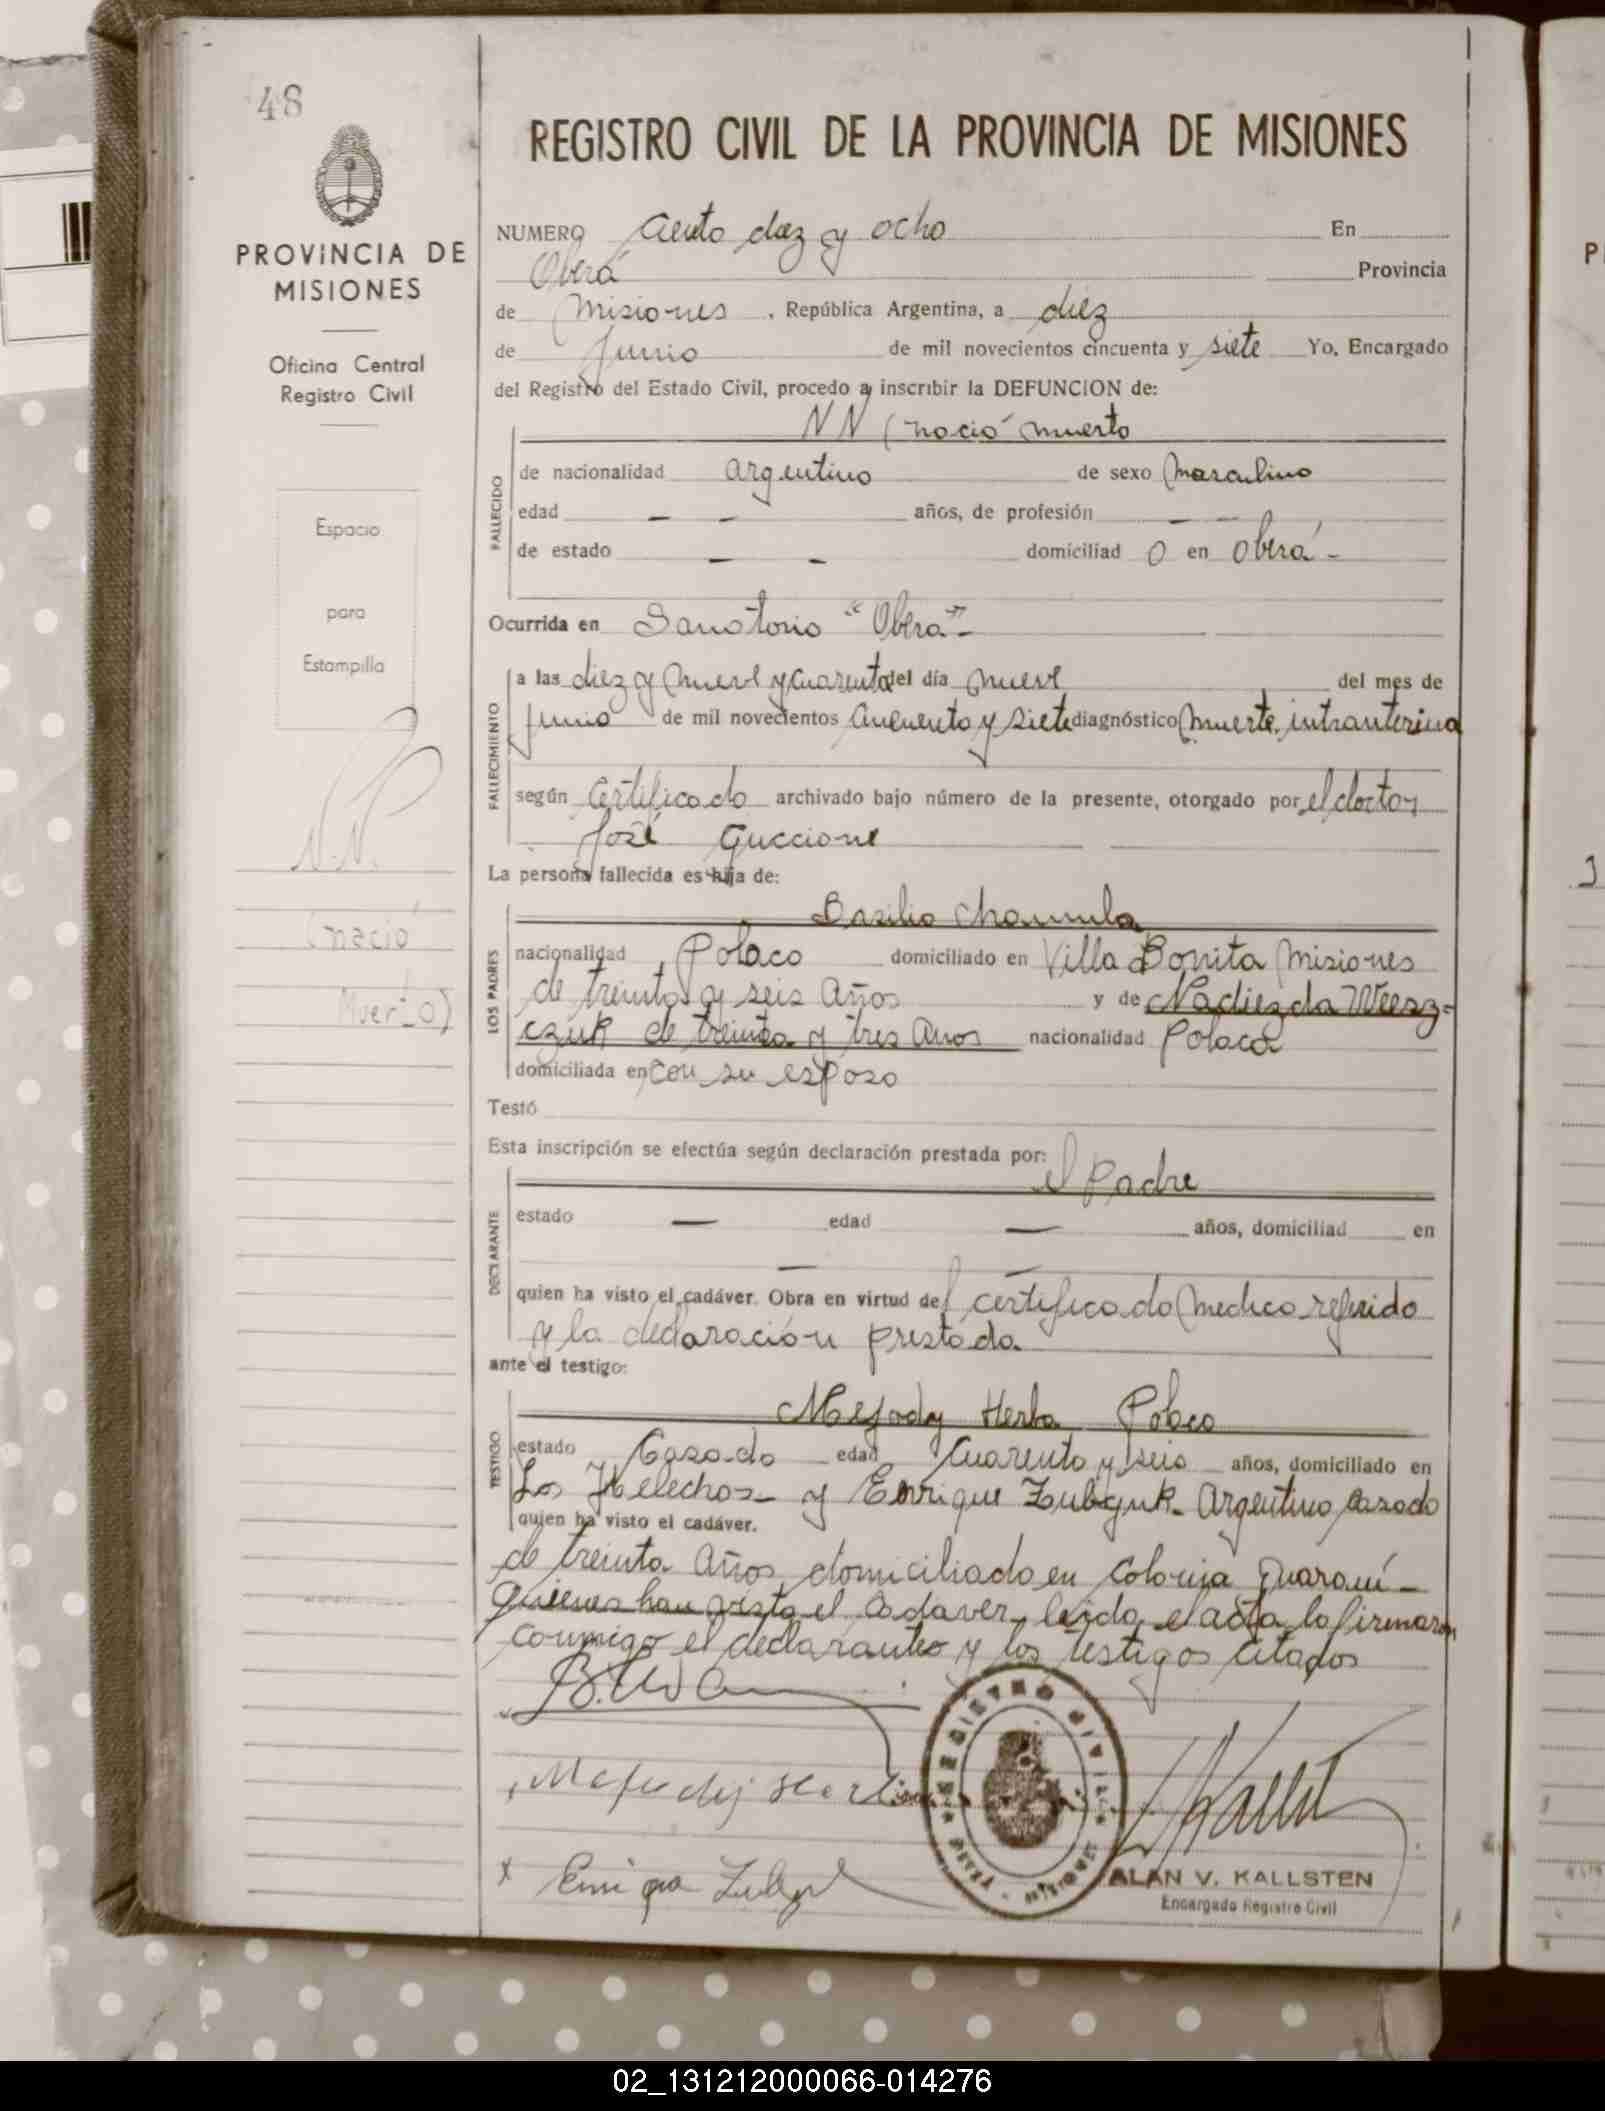 48
REGISTRO CIVIL DE LA PROVINCIA DE MISIONES
PROVINCIA DE
MISIONES
Oficina Central
Registro Civil
Espacio
para
Estampilla
N.N.
(nació
Muerto)
NUMERO ciento diez y ocho En
Oberá Provincia
de Misiones , República Argentina, a diez
de Junio de mil novecientos cincuenta y siete Yo, Encargado
del Registro del Estado Civil, procedo a inscribir la DEFUNCION de:
NN (nació muerto
FALLECIDO
de nacionalidad argentino de sexo masculino
edad — — años, de profesión — —
de estado — — domiciliad o en Oberá -
Ocurrida en Sanatorio "Oberá"-
FALLECIMIENTO
a las diez y nueve y cuarenta del día nueve del mes de
Junio de mil novecientos cincuenta y siete diagnóstico muerte intrauterina
según certificado archivado bajo número de la presente, otorgado por el doctor
José Guccione
La persona fallecida es hija de:
LOS PADRES
Basilio
nacionalidad Polaco domiciliado en Villa Bonita Misiones
de treinta y seis Años y de Nadiezda
czuk de treinta y tres Años nacionalidad Polaca
domiciliada en con su esposo
Testó
Esta inscripción se efectúa según declaración prestada por:
el Padre
DECLARANTE
estado — edad — años, domiciliad en
— —
quien ha visto el cadáver. Obra en virtud del certificado medico referido
y la declaración prestada.
ante el testigo:
TESTIGO
Mefody Herba Polaco
estado Casado edad Cuarenta y seis años, domiciliado en
Los Helechos - y Enrique Zubczuk - Argentino casado
quien ha visto el cadáver.
de treinta Años domiciliado en Colonia Guaraní -
quienes han visto el cadaver, leida el acta la firmaron
conmigo el declarante y los testigos citados
REGISTRO CIVIL
ALAN V. KALLSTEN
Encargado Registro Civil
02_131212000066-014276